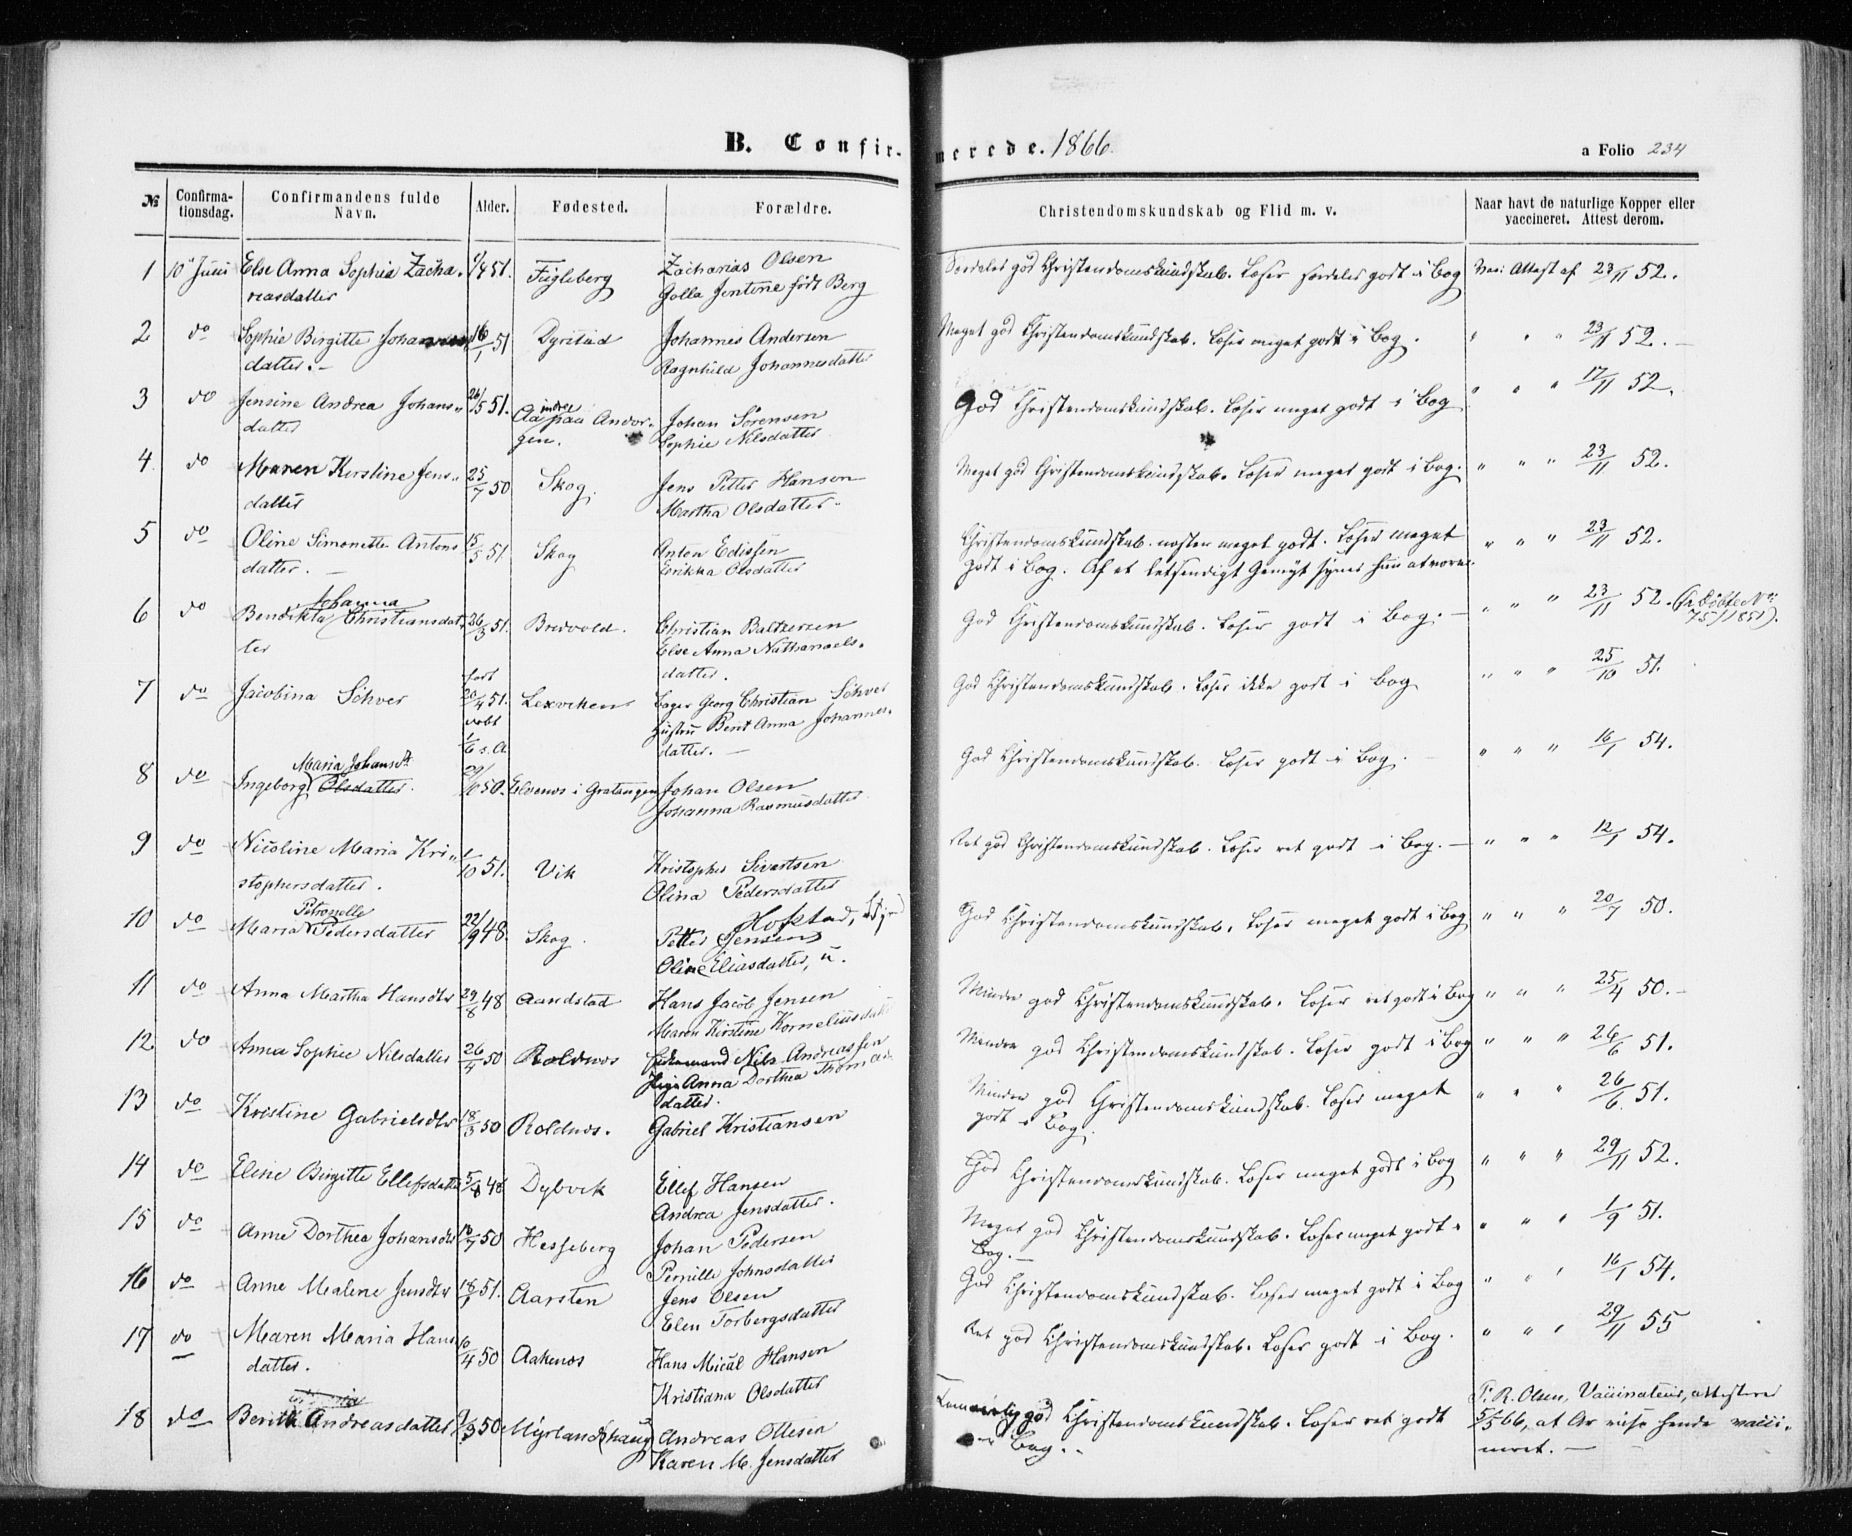 B. Confirmerede. 1866.
a Folio 234
№ Confirmationsdag. Confirmandens fulde Navn. Alder. Fødested. Forældre. Christendomskundskab og Flid m. v. Naar havt de naturlige Kopper eller vaccineret. Attest derom.
1 10de Juni Else Anna Sophia Zacha- 51. Fugleberg Zacharias Olsen Særdeles god Christendomskundskab. Læser særdeles godt i Bog Vac: Attest af 23/11 52.
reasdatter Jentine født Berg
2 do Sophie Birgitte 16/1 51 Dyrstad Johannes Andersen Meget god Christendomskundskab. Læser meget godt i Bog. " " " 23/11 52.
datter. Ragnhild Johannesdatter
3 do Jensine Andrea Johans- 26/5 51. Aa indre paa Andør- Johan Sørensen God Christendomskundskab. Læser meget godt i Bog " " " 17/11 52.
datter gen. Sophie Nilsdatter
4. do Maren Kirstine Jens- 25/7 50 Skog. Jens Petter Hanson Meget god Christendomskundskab. Læser meget godt i Bog. " " " 23/11 52.
datter Martha Olsdatter.
5 do Oline Simonette Antons 15/5 51. Skog Anton Edissen Christendomskundskab næsten meget godt. Læser meget " " " 23/11 52.
datter. Erikka Olsdatter godt i Bog. Af et letsindigt Gemyt synes hun at være.
6 do Bendikta Johanna Christiansdat- 26/3 51. Bredvold. Christian Baltzersen God Christendomskundskab. Læser godt i Bog. " " " 23/11 52. 75/1851).
ter Else Anna Nathanaels-
datter.
7 do Jacobina Schver født 20/4 51. døbt 1/6 s. A Lexviken Georg Christian Schver God Christendomskundskab. Læser ikke godt i Bog " " " 25/10 51.
Hustru Berit Anna Johannes-
datter.
8 do Ingeborg Maria Johansdt Olsdatter. 50. Elvenes i Gratangen Johan Olsen God Christendomskundskab. Læser godt i Bog. " " " 16/1 54.
Johanna Rasmusdatter
9 do Nicoline Maria Kri- 1/10 51. Vik Kristopher Sivertsen Ret god Christendomskundskab. Læser ret godt i Bog. " " " 12/1 54.
stophersdatter. Olina Pedersdatter
10 do Maria Petronelle Pedersdatter 22/9 48. Skog. Petter Jensen Hofstad, God Christendomskundskab, Læser meget godt i Bog " " " 20/7 50.
Oline Eliasdatter, u.
11 do Anna Martha Hansdtr 29/8 48 Aandstad Hans Jacob Jensen Mindre god Christendomskundskab. Læser ret godt i Bog " " " 25/4 50.
Maren Kirstine Korneliusdatt
12 do Anna Sophie Nilsdatter 26/4 50 Roldnes Nils Andreassen Mindre god Christendomskundskab. Læser godt i Bog " " " 26/6 51.
Anna Dorthea
datter.
13 do Kristine Gabrielsdtr 18/3 50 Roldnes. Gabriel Kristiansen Mindre god Christendomskundskab. Læser meget " " " 26/6 51.
godt i Bog.
14 do Eline Birgitte Ellefsdatter 48 Dybvik Ellef Hansen God Christendomskundskab. Læser meget godt i Bog " " " 29/11 52.
Andrea Jensdatter.
15 do Anne Dorthea Johansdtr 50 Hesseberg Johan Pedersen Meget god Christendomskundskab. Læser meget godt i " " " 1/9 51.
Pernille Johnsdatter Bog.
16 do Anne Malene Jensdtr 51. Aarsten Jens Olsen God Christendomskundskab. Læser meget godt i Bog " " " 16/1 54.
Elen Torbergsdatter
17 do Maren Maria Hans 10/4 50 Aakenes Hans Hansen Ret god Christendomskundskab. Læser godt i Bog. " " " 29/11 55
datter. Kristiana Olsdatter
18 do Berith Andreasdatter 50 Myrlandshaug Andreas Ottesen Temmelig god Christendomskundskab. Læser ret godt P. R. Olsen, Vaccinateur, attesterer
Karen M. Jensdatter i Bog. 5/5 66, at Ar vise hende vacci-
neret.